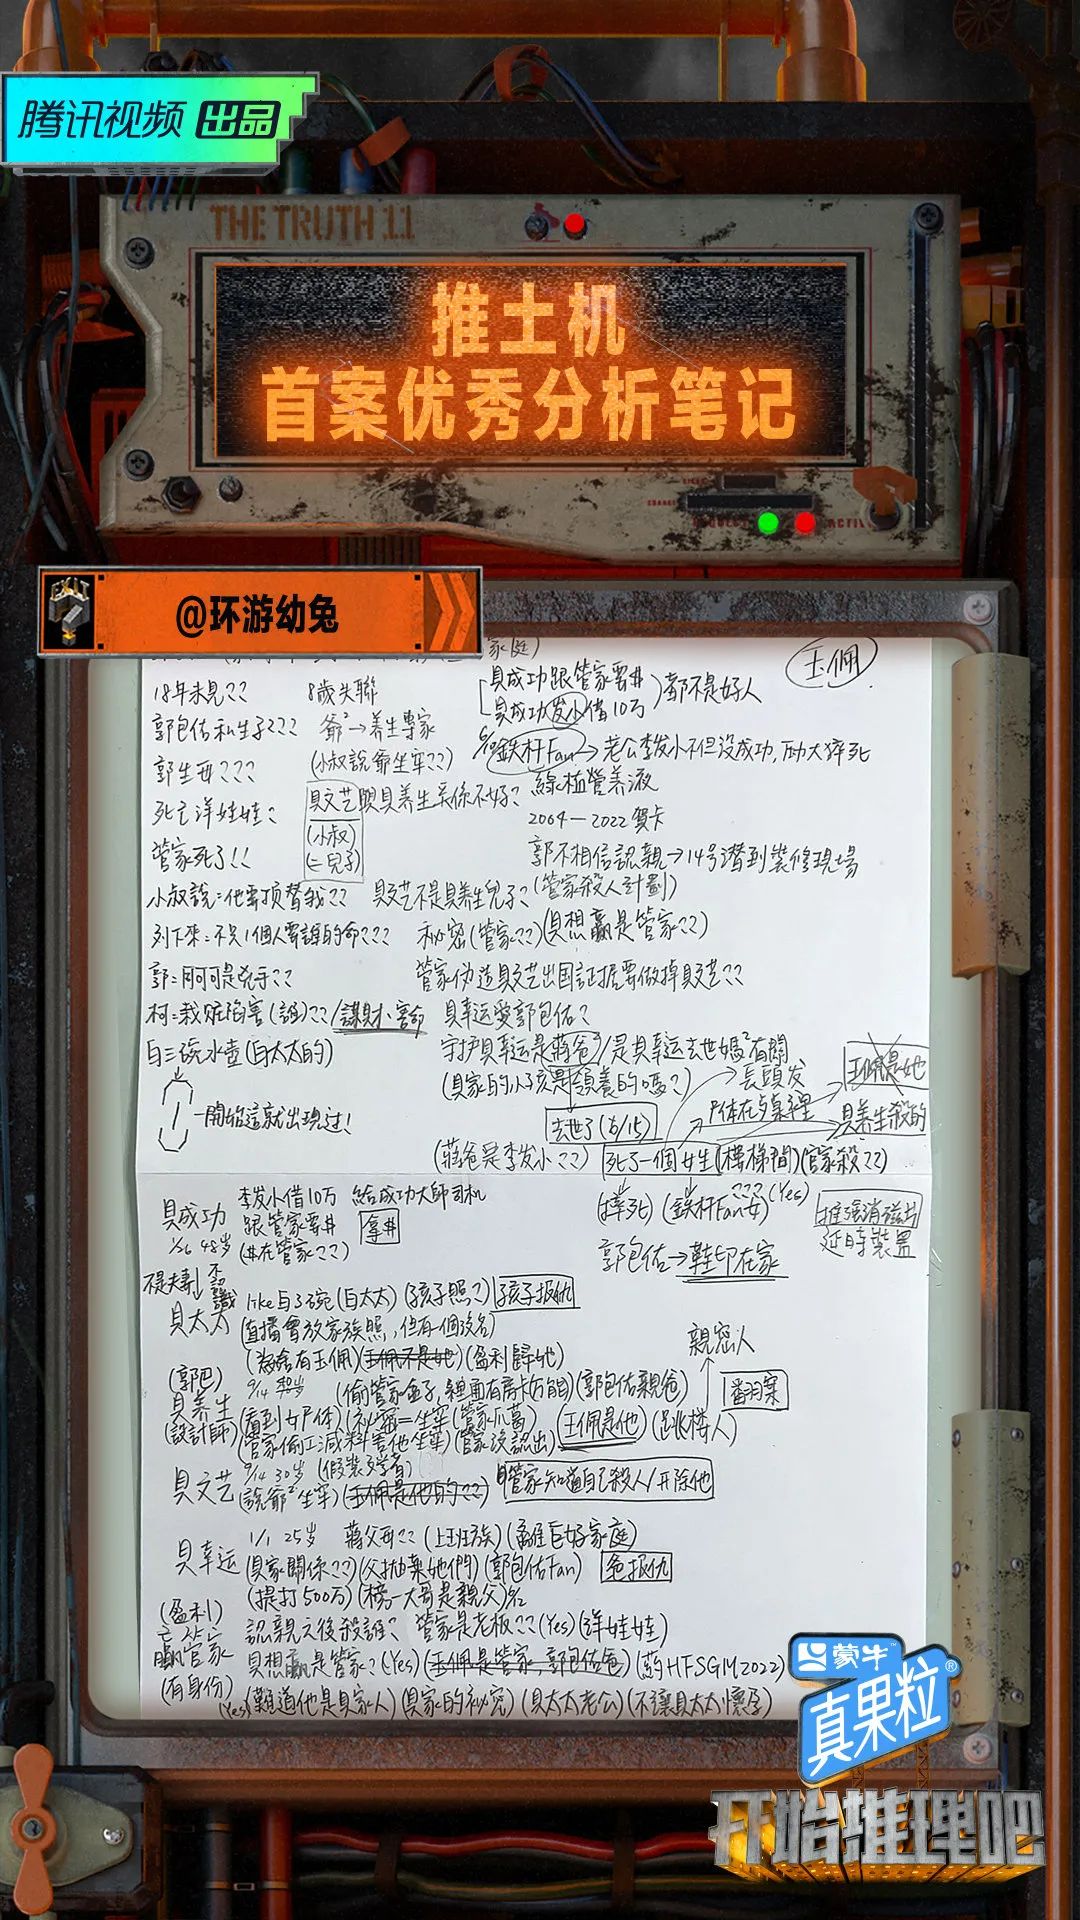 腾讯视频 出品
THE TRUTH 11
推土机
首案优秀分析笔记
EXIT
@环游幼兔
家庭)
玉佩
18年未見?? 8歲失聯
具成功跟管家要#
具成功发小借10万 都不是好人
郭包佑私生子??? 爺²→养生專家
鉄杆Fan→老公李发小不但没成功,
郭生母??? (小叔說爺坐牢??)
綠植營养液
死亡洋娃娃? 具文艺跟具养生关係不好?
(小叔)
(二兒子)
2004—2022賀卡
管家死了!! 郭不相信認親→14号潛到裝修現場
小叔說:他要顶替我?? 具文艺不是具养生兒子? (管家殺人計劃)
列下來:不只1個人要誰的命??? 秘密(管家??)(具想赢是管家??)
郭:阿可是兇手?? 管家伪造具文艺出国証据要做掉具文艺??
柯:栽赃陷害(誰)??/謀財小害命 具幸运爱郭包佑?
白三碗水壶(白太太的) 守护具幸运是蔣爸²/是具幸运去世媽²有關
(具家的小孩是領養的嗎?) 長頭发
玉佩是她
一開始這就出現过! 去世了(6/15) 尸体在 具养生殺的
(蔣爸是李发小??) 死了一個女生(樓梯間)(管家殺??)
具成功 李发小借10万 給成功大師司机
1/26 48岁 跟管家要# 拿#
(#在管家??)
(摔死) (鉄杆Fan女)???(Yes)
延時裝置
郭包佑→鞋印在家
不是夫妻 不認識
具太太 like白三碗(白太太)(孩子照?) 孩子报仇
(直播會放家族照,但有一個没名)
(為啥有玉佩)(玉佩不是她)(盈利歸她)
親密人
翻案
(郭巴) 9/14
具养生 (偷管家金子, (郭包佑親爸)
(設計師) (看到女尸体)
(管家偷工減料害他坐牢)(管家没認出) 玉佩是他 (跳楼人)
9/14 30岁 (假裝文学者)
具文艺 (說爺²坐牢)(玉佩是他的??) 管家知道自己殺人/开除他
1/1 25岁 蔣父母??(上班族)(離巨好家庭)
具幸运 (具家關係??)(父抛棄她們)(郭包佑Fan) 爸报仇
(提打500万)(榜一大哥是親父)
(盈利) 認親之後殺誰? 管家是老板??(Yes)(洋娃娃)
管家 具想贏是管家?(Yes)(玉佩是管家,郭包佑爸)(葯HFSGM2022)
(有身份) (Yes)(難道他是具家人)(具家的秘密)(具太太老公)(不讓具太太懷孕)
蒙牛
真果粒
开始推理吧